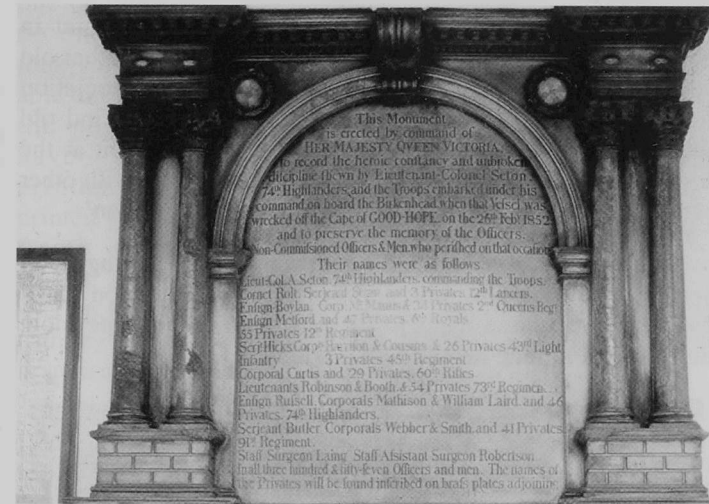 This Monument
is erected by command of
HER MAJESTY QVEEN VICTORIA,
to record the heroic constancy and unbroken
discipline shewn by Lieutenant-Colonel Seton
74th Highlanders, and the Troops embarked under his
command, on board the Birkenhead when that Vessel was
wrecked off the Cape of GOOD HOPE, on the 26th Feby 1852
and to preserve the memory of the Officers,
Non-Commissioned Officers & Men, who perished on that occasion
Their names were as follows
Lieut-Col. A. Seton 74th Highlanders, commanding the Troops.
Cornet Rolt, Serjeant and 3 Privates 12th Lancers.
Ensign Boylan, Corp. Privates 2nd Queens Regt
Ensign Metford and 47 Privates 6th Royals.
55 Privates 12th Regiment
Serjt Hicks Corpls Harrison & Cousins & 26 Privates 43rd Light
Infantry 3 Privates 45th Regiment
Corporal Curtis and 29 Privates 60th Rifles
Lieutenants Robinson & Booth & 54 Privates 73rd Regiment.
Ensign Russell, Corporals Mathison & William Laird, and 46
Privates, 74th Highlanders.
Serjeant Butler Corporals Webber & Smith and 41 Privates
91st Regiment.
Staff Surgeon Laing Staff Assistant Surgeon Robertson.
In all three hundred & fifty-seven Officers and men. The names of
the Privates will be found inscribed on brass plates adjoining.